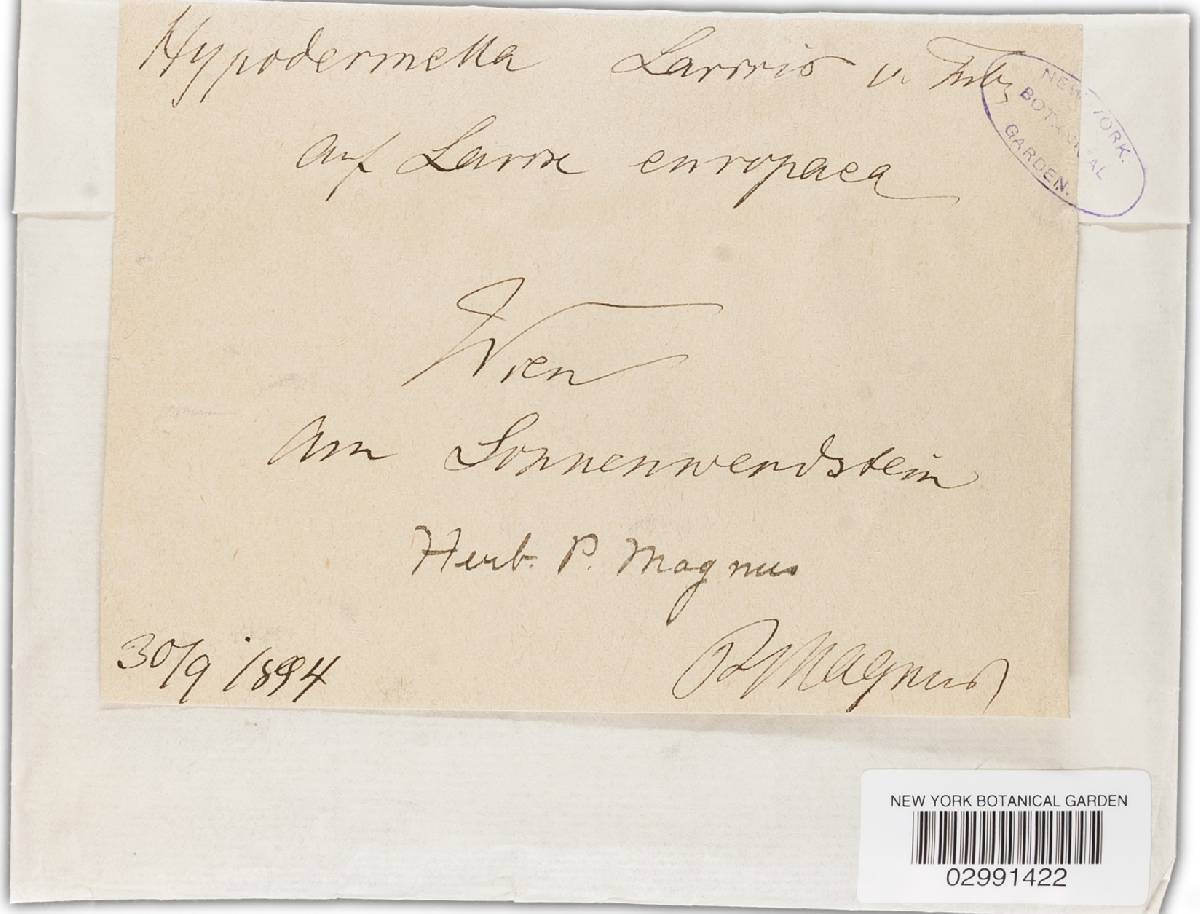 Hypodermella Laricis v. Tubf
auf Larix europaea
Wien
am Sonnenwendstein
Herb. P. Magnus
30/9 1894
P Magnus
NEW YORK
BOTANICAL
GARDEN.
NEW YORK BOTANICAL GARDEN
02991422